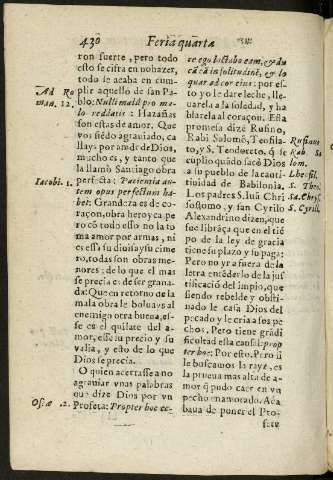 430 Feria quarta
ron suerte, pero todo
esto se cifra en no hazer,
todo se acaba en cum-
plir aquello de san Pa-
blo: Nulli malũ pro ma-
lo reddatis: Hazañas
son estas de amor. Que
vos siẽdo agraviado, ca
lleys por amor de Dios,
mucho es, y tanto que
la llamò Santiago obra
perfecta: Patientia au-
tem opus perfectum ha-
bet: Grandeza es de co-
raçon, obra heroyca, pe-
rò cõ todo esso no la to
ma amor por armas, ni
es essa su divisa y su cime
ro, todas son obras me-
nores: de lo que el mas
se precia es de ser grana-
da: Que en retorno de la
mala obra le bolvays al
enemigo otra buena, es-
se es el quilate del a-
mor, esse su precio y su
valia, y esto de lo que
Dios se precia.
O quien acertasse a no
agraviar unas palabras
que dize Dios por un
Profeta: Propter hoc ec-
Ad Ro
man. 12.
Iacobi. 1.
Osęæ .2.
ce ego lactabo eam, & du
cã eã in solitudinẽ, & lo
quar ad cor eius: por es-
to yo le dare leche, lle-
uarela a la soledad, y ha
blarela al coraçon. Esta
promesa dizè Rufino,
Rabi Salomò, Teofila-
to, y S. Teodoreto, q̃ se
cumplio quãdo sacò Dios
a su pueblo de la cauti-
tividad de Babilonia.
Los padres S. Iuã Chri
sostomo, y san Cyrilo
Alexandrino dizen, que
fue librãça que en el tiẽ
po de la ley de gracia
tiene su plazo y su paga:
Pero no yr a fuera de la
letra entẽderlo de la jus
tificaciõ del impio, que
siendo rebelde y obsti-
nado le saca Dios del
pecado y le cria a sus pe
chos. Pero tiene grãdi
ficultad esta causal: prop
ter hoc: Por esto. Pero si
le buscamos la rayz, es
la prueva mas alta de a-
mor q̃ pudo caer en vn
pecho enamorado. Aca
bava de poner el Pro-
Rufinus
Rab. Sa
lom.
S. Theo.
S. Cyril.